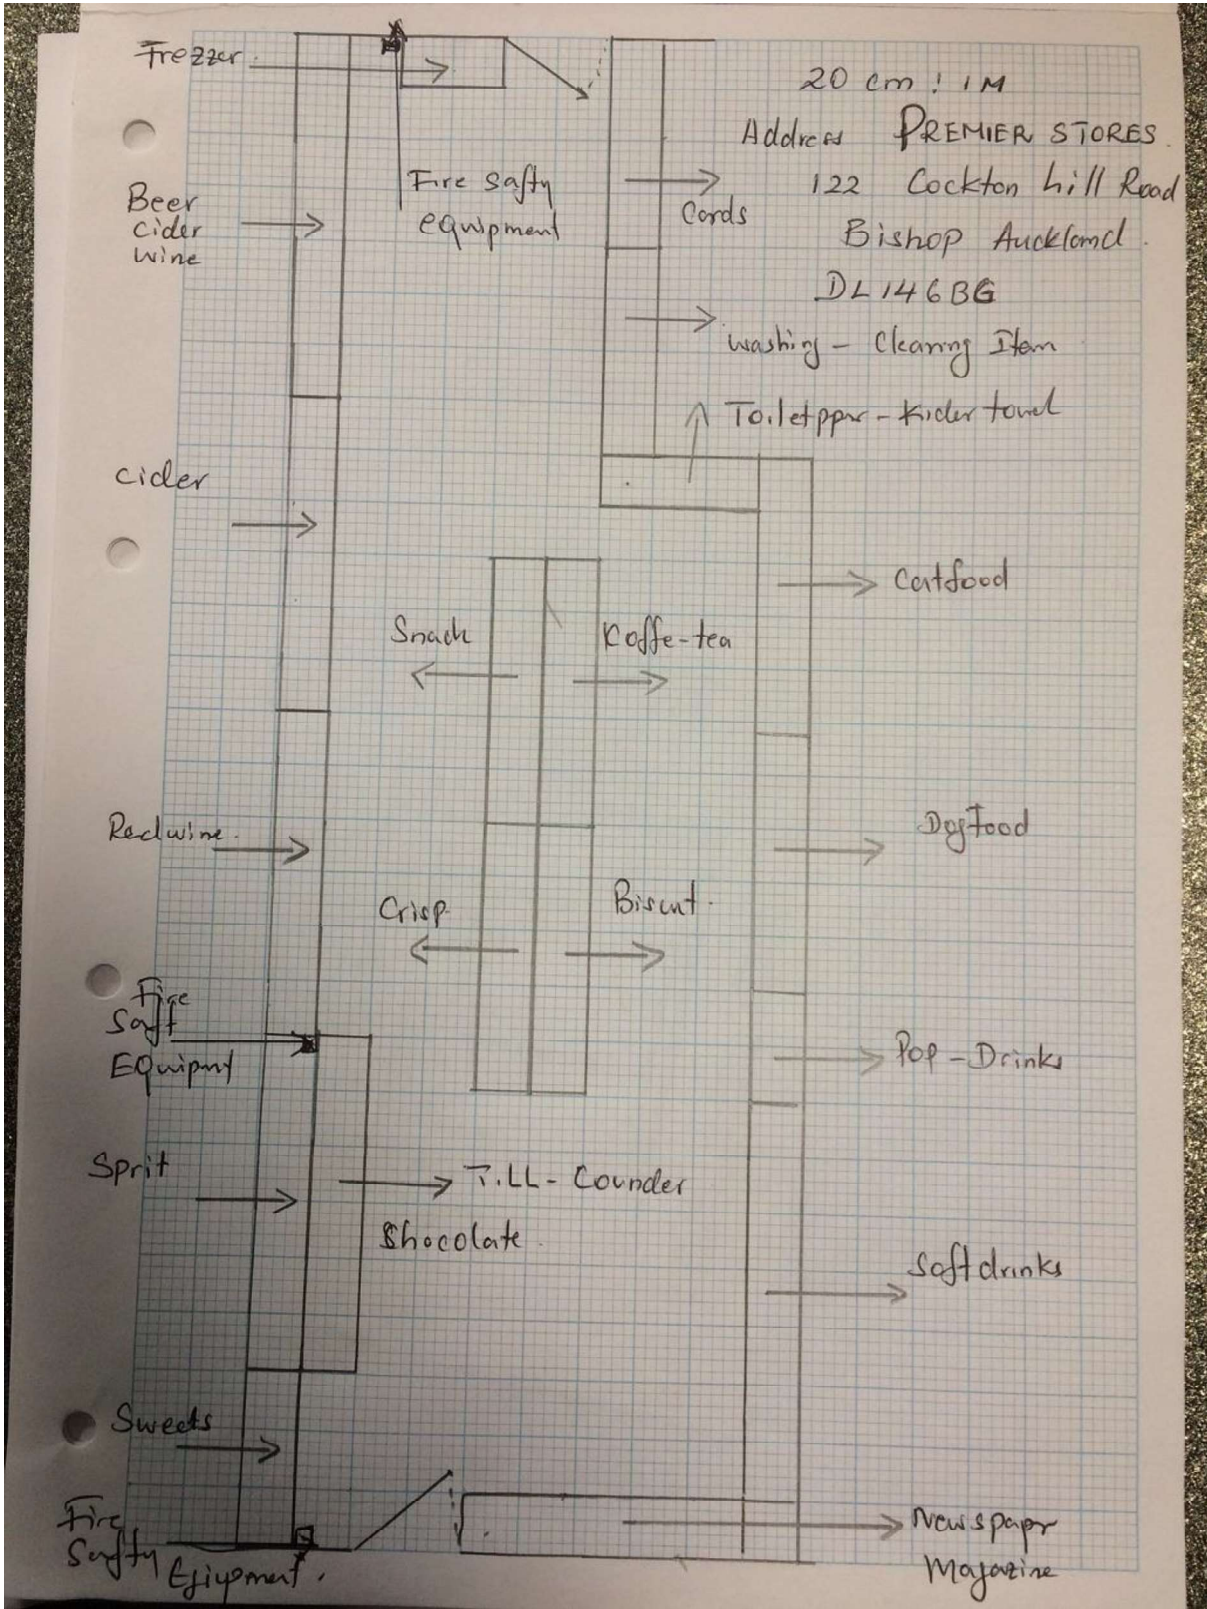 Frezzer.
20 cm : 1M
Address PREMIER STORES.
122 Cockton hill Road
Bishop Auckland.
DL146BG
Fire Safty
equipment
Cards
Beer
cider
wine
washing - Cleaning Item
Toiletppr - Kider towel
cider
Catfood
Snack
Koffe-tea
Redwine.
Dogfood
Crisp.
Biscut.
Fire
Saft
EQuipmt
Pop - Drinks
Sprit
TiLL - Counder
Shocolate.
Soft drinks
Sweets
Fire
Safty
Eqiupment.
Newspapr
Magazine